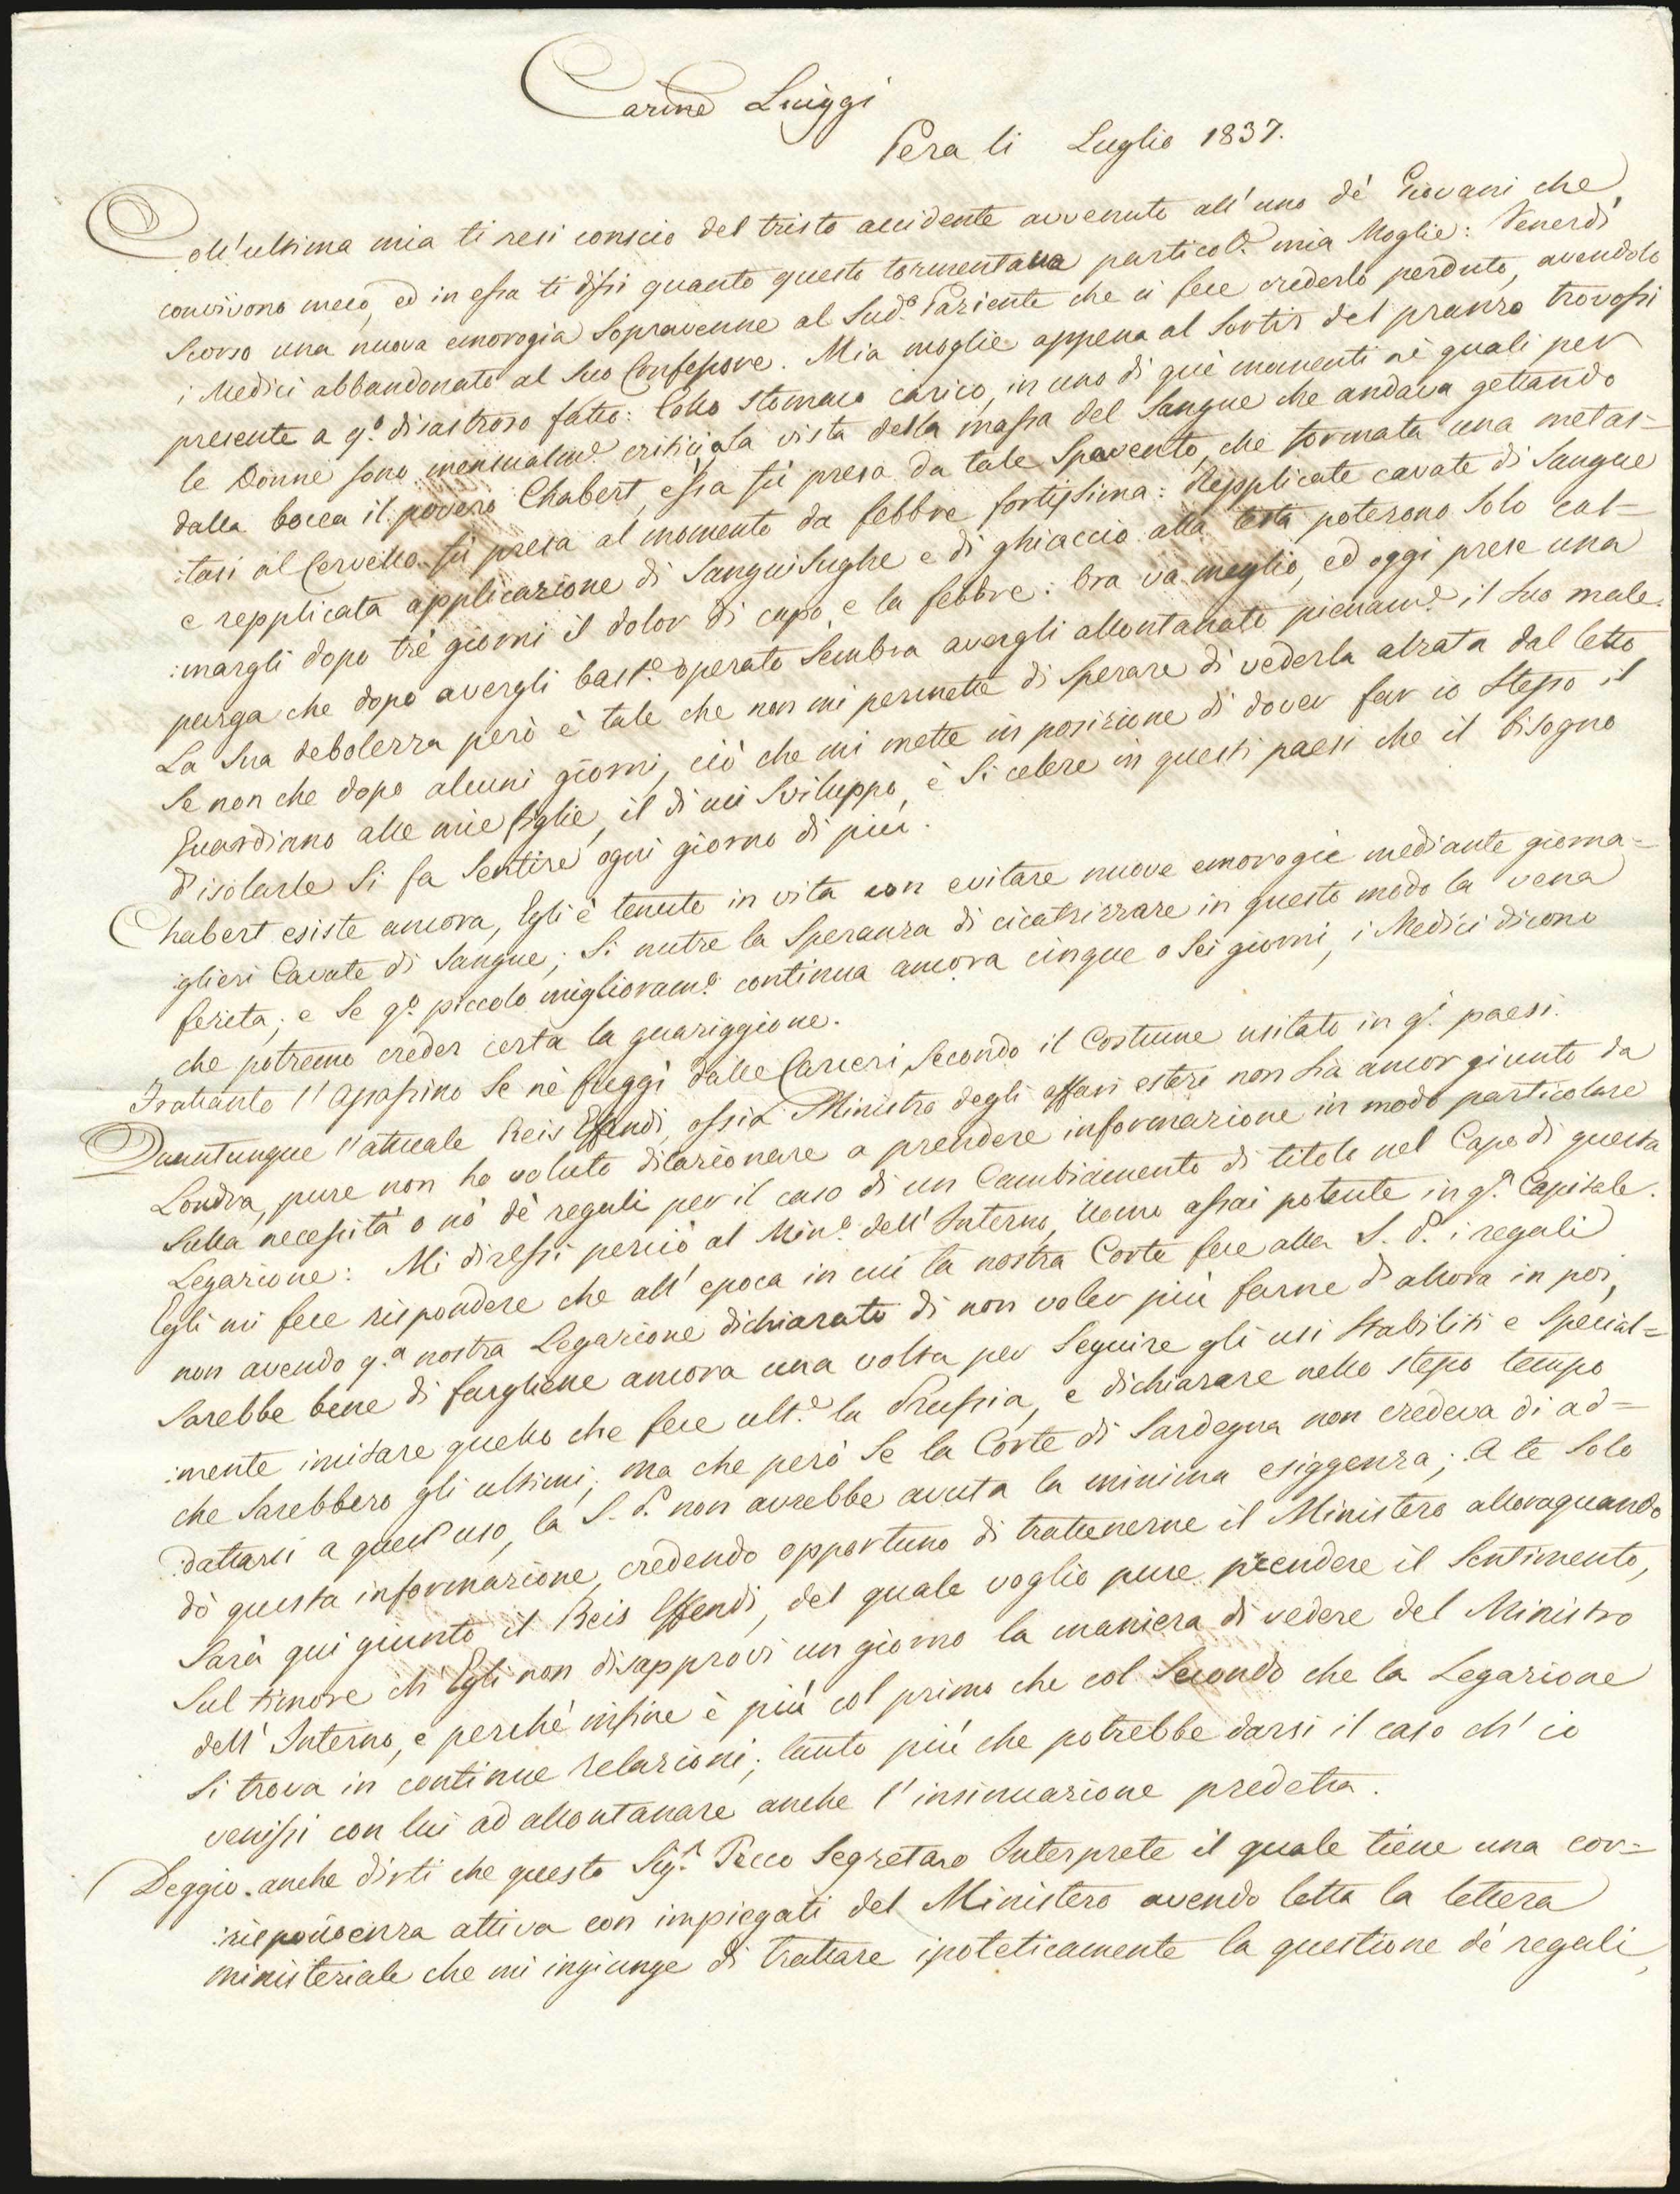 Carmo Luiggi
Pera li Luglio 1837.
Coll'ultima mia ti resi conscio del tristo accidente avvenuto all'uno de' Giovani che
convivono meco, ed in essa ti dissi quanto questo tormentava particol.e mia Moglie: Venerdì
scorso una nuova emorogia sopravenne al Sud.o Paziente che ci fece crederlo perduto, avendolo
i Medici abbandonato al suo Confessore. Mia moglie appena al sortir del pranzo trovossi
presente a q.o disastroso fatto: Collo stomaco carico, in uno di què momenti nè quali per
le Donne sono mensualm.e critici, a la vista della massa del Sangue che andava gettando
dalla bocca il povero Chabert, essa fù presa da tale Spavento, che formata una metas=
:tasi al Cervello fù presa al momento da febbre fortissima: Repplicate cavate di Sangue
e repplicata applicazione di Sanguisughe e di ghiaccio alla testa poterono solo cal=
:margli dopo trè giorni il dolor di capo, e la febbre: Ora và meglio, ed oggi prese una
purga che dopo avergli bast.e operato sembra avergli allontanato pienam.e il suo male.
La sua debolezza però è tale che non mi permette di sperare di vederla alzata dal letto
se non che dopo alcuni giorni, ciò che mi mette in posizione di dover far io stesso il
Guardiano alle mie figlie, il di cui Sviluppo, è sì celere in questi paesi che il bisogno
d'isolarle si fa sentire ogni giorno di più.
Chabert esiste ancora, Egli è tenuto in vita con evitare nuove emorogie mediante giorna=
:glieri Cavate di Sangue; Si nutre la Speranza di cicatrizzare in questo modo la vena
ferita; e se q.o piccolo miglioram.o continua ancora cinque o sei giorni, i Medici dicono
che potremo creder certa la guariggione.
Frattanto l'Assassino se nè fuggì dalle Carceri, secondo il Costume usitato in q.i paesi.
Quantunque l'attuale Reis Effendi, ossia Ministro degli affari esteri non sia ancor giunto da
Londra, pure non ho voluto dilazionare a prendere informazione in modo particolare
sulla necessità o nò dè regali per il caso di un Cambiamento di titolo nel Capo di questa
Legazione: Mi diressi perciò al Min.o dell'Interno, Uomo assai potente in q.a Capitale.
Egli mi fece rispondere che all'epoca in cui la nostra Corte fece alla S. P. i regali
non avendo q.a nostra Legazione dichiarato di non voler più farne d'allora in poi,
sarebbe bene di fargliene ancora una volta per seguire gli usi stabiliti e special=
:mente imitare quello che fece ult.e la Prussia, e dichiarare nello stesso tempo
che sarebbero gli ultimi; ma che però se la Corte di Sardegna non credeva di ad=
:dattarsi a quest'uso, la S. P. non avrebbe avuta la minima esiggenza; A te solo
dò questa informazione, credendo opportuno di trattenerne il Ministero alloraquando
sarà qui giunto il Reis Effendi, del quale voglio pure prendere il sentimento,
sul timore ch'Egli non disapprovi un giorno la maniera di vedere del Ministro
dell'Interno, e perchè infine è più col primo che col Secondo che la Legazione
si trova in continue relazioni; tanto più che potrebbe darsi il caso ch'io
venissi con lui ad allontanare anche l'insinuazione predetta.
Deggio anche dirti che questo Sig.r Pecco Segretaro Interprete il quale tiene una cor=
:rispondenza attiva con impiegati del Ministero avendo letta la lettera
ministeriale che mi ingiunge di trattare ipoteticamente la questione dè regali,